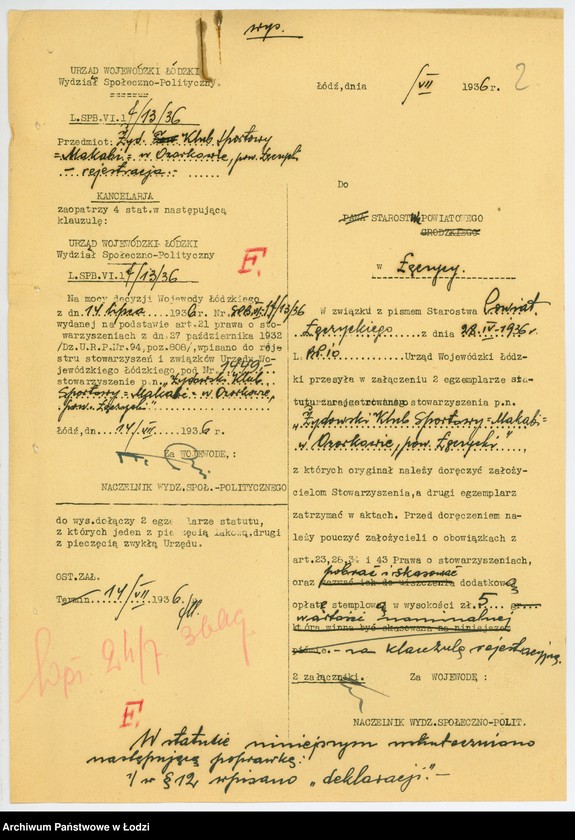 wyp.
URZĄD WOJEWÓDZKI ŁÓDZKI
Wydział Społeczno-Polityczny.
L.SPB.VI.1f/13/36
Przedmiot: Żyd. Klub Sportowy
"Makabi" w Ozorkowie, pow. Łęczycki
- rejestracja.-
KANCELARJA
zaopatrzy 4 stat.w następującą
klauzulę:
URZĄD WOJEWÓDZKI ŁÓDZKI
Wydział Społeczno-Polityczny
L.SPB.VI.1f/13/36
F.
Na mocy decyzji Wojewody Łódzkiego
z dn. 14 lipca 1936 r. Nr. SPB.VI.1f/13/36
wydanej na podstawie art.21 prawa o sto-
warzyszeniach z dn.27 października 1932
/Dz.U.R.P.Nr.94,poz.808/,wpisano do reje
stru stowarzyszeń i związków Urzędu Wo-
jewódzkiego Łódzkiego,pod Nr. 4449
stowarzyszenie p.n. "Żydowski Klub
Sportowy "Makabi" w Ozorkowie,
pow. Łęczycki"
Łódź,dn. 14/VII 1936 r.
Za WOJEWODĘ,:
NACZELNIK WYDZ.SPOŁ.-POLITYCZNEGO
do wys.dołączy 2 egzemplarze statutu,
z których jeden z pieczęcią lakową,drugi
z pieczęcią zwykłą Urzędu.
OST.ZAŁ.
Termin 14/VII 1936 r.
Wpł. 24/7 3 bag.
F.
Łódź,dnia /VII 1936 r.
2
Do
PANA STAROSTY POWIATOWEGO
GRODZKIEGO
w Łęczycy.
W związku z pismem Starosty Powiat.
Łęczyckiego z dnia 28.IV-1936r.
L. Urząd Wojewódzki Łódz-
ki przesyła w załączeniu 2 egzemplarze sta-
tutu zarejestrowanego stowarzyszenia p.n.
"Żydowski Klub Sportowy "Makabi"
w Ozorkowie, pow. Łęczycki",
z których oryginał należy doręczyć założy-
cielom Stowarzyszenia,a drugi egzemplarz
zatrzymać w aktach. Przed doręczeniem na-
leży pouczyć założycieli o obowiązkach z
art.23,26,34 i 43 Prawa o stowarzyszeniach,
pobrać i skasować
oraz wezwać ich do uiszczenia dodatkową
opłatę stemplową w wysokości zł. 5 gr.
wartości nominalnej
która winna być skasowana na niniejszem
piśmie. - na klauzulę rejestracyjną.
2 załączniki. Za WOJEWODĘ :
NACZELNIK WYDZ.SPOŁECZNO-POLIT.
W statucie niniejszym uskuteczniono
następującą poprawkę:
1/ w § 12 wpisano "deklaracji".-
Archiwum Państwowe w Łodzi